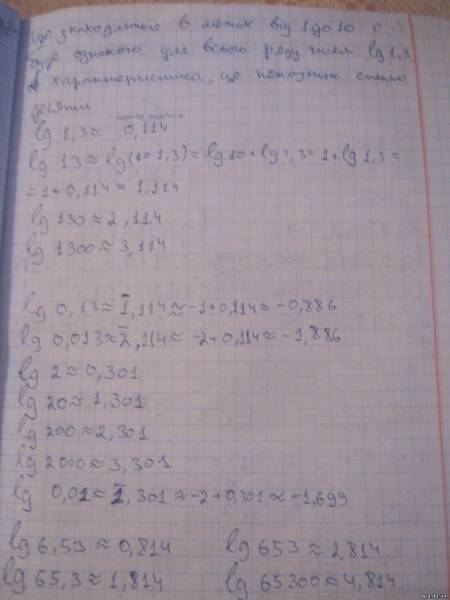 що знаходиться в межах від 1 до 10 є
однакова для всього ряду чисел lg 1,3
характеристика, це показник степеню
десяти
характеристика
lg 1,3 ≈ 0,114
lg 13 ≈ lg(10·1,3) = lg 10 + lg 1,3 = 1 + lg 1,3 =
= 1 + 0,114 = 1,114
lg 130 ≈ 2,114
lg 1300 ≈ 3,114
lg 0,13 ≈ 1̄,114 ≈ -1 + 0,114 ≈ -0,886
lg 0,013 ≈ 2̄,114 ≈ -2 + 0,114 ≈ -1,886
lg 2 ≈ 0,301
lg 20 ≈ 1,301
lg 200 ≈ 2,301
lg 2000 ≈ 3,301
lg 0,02 ≈ 2̄,301 ≈ -2 + 0,301 ≈ -1,699
lg 6,53 ≈ 0,814 lg 653 ≈ 2,814
lg 65,3 ≈ 1,814 lg 65300 ≈ 4,814